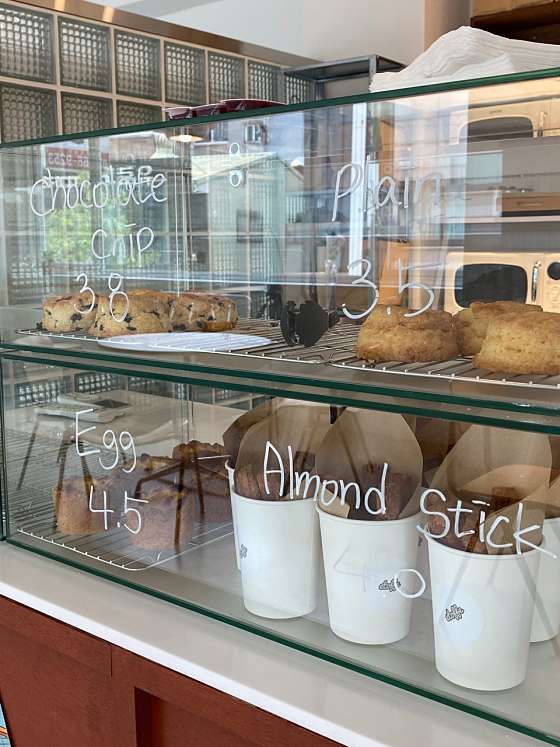 Chocolate
Cnip
3.8
Plain
3.5
Egg
4.5
Almond Stick
4.0